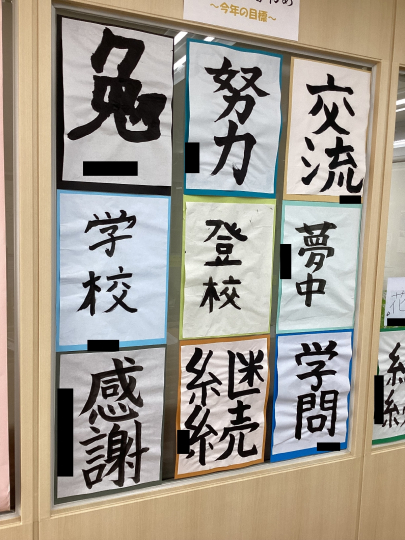 ～今年の目標～
兔
努力
交流
学校
登校
夢中
感謝
継続
学問
花